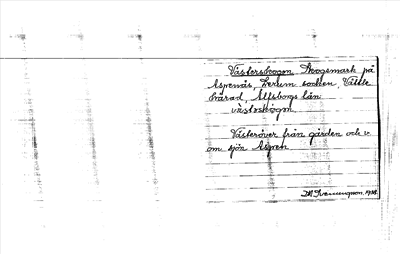 Västerskogen, Skogsmark på
Aspenäs, Lerum socken, Vättle
härad, Älfsborgs län.
västaskogen.
Västeröver från gården och v.
om sjön Aspen
1938